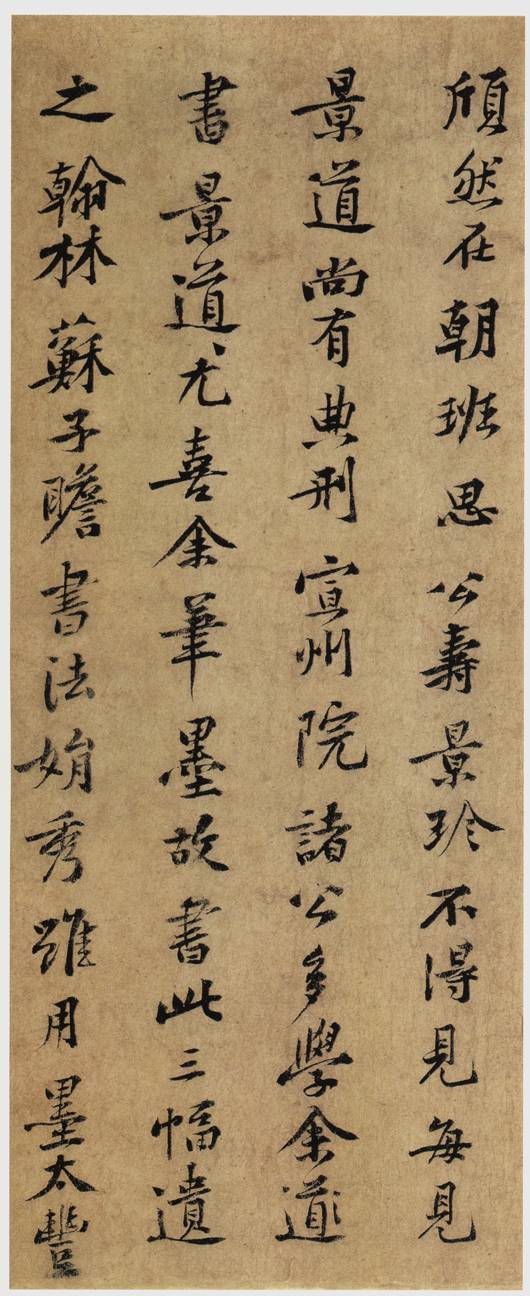 頎然在朝班思公壽景珍不得見每見
景道尚有典刑宣州院諸公多學余道
書景道尤喜余筆墨故書此三幅遺
之翰林蘇子瞻書法娟秀雖用墨太豐